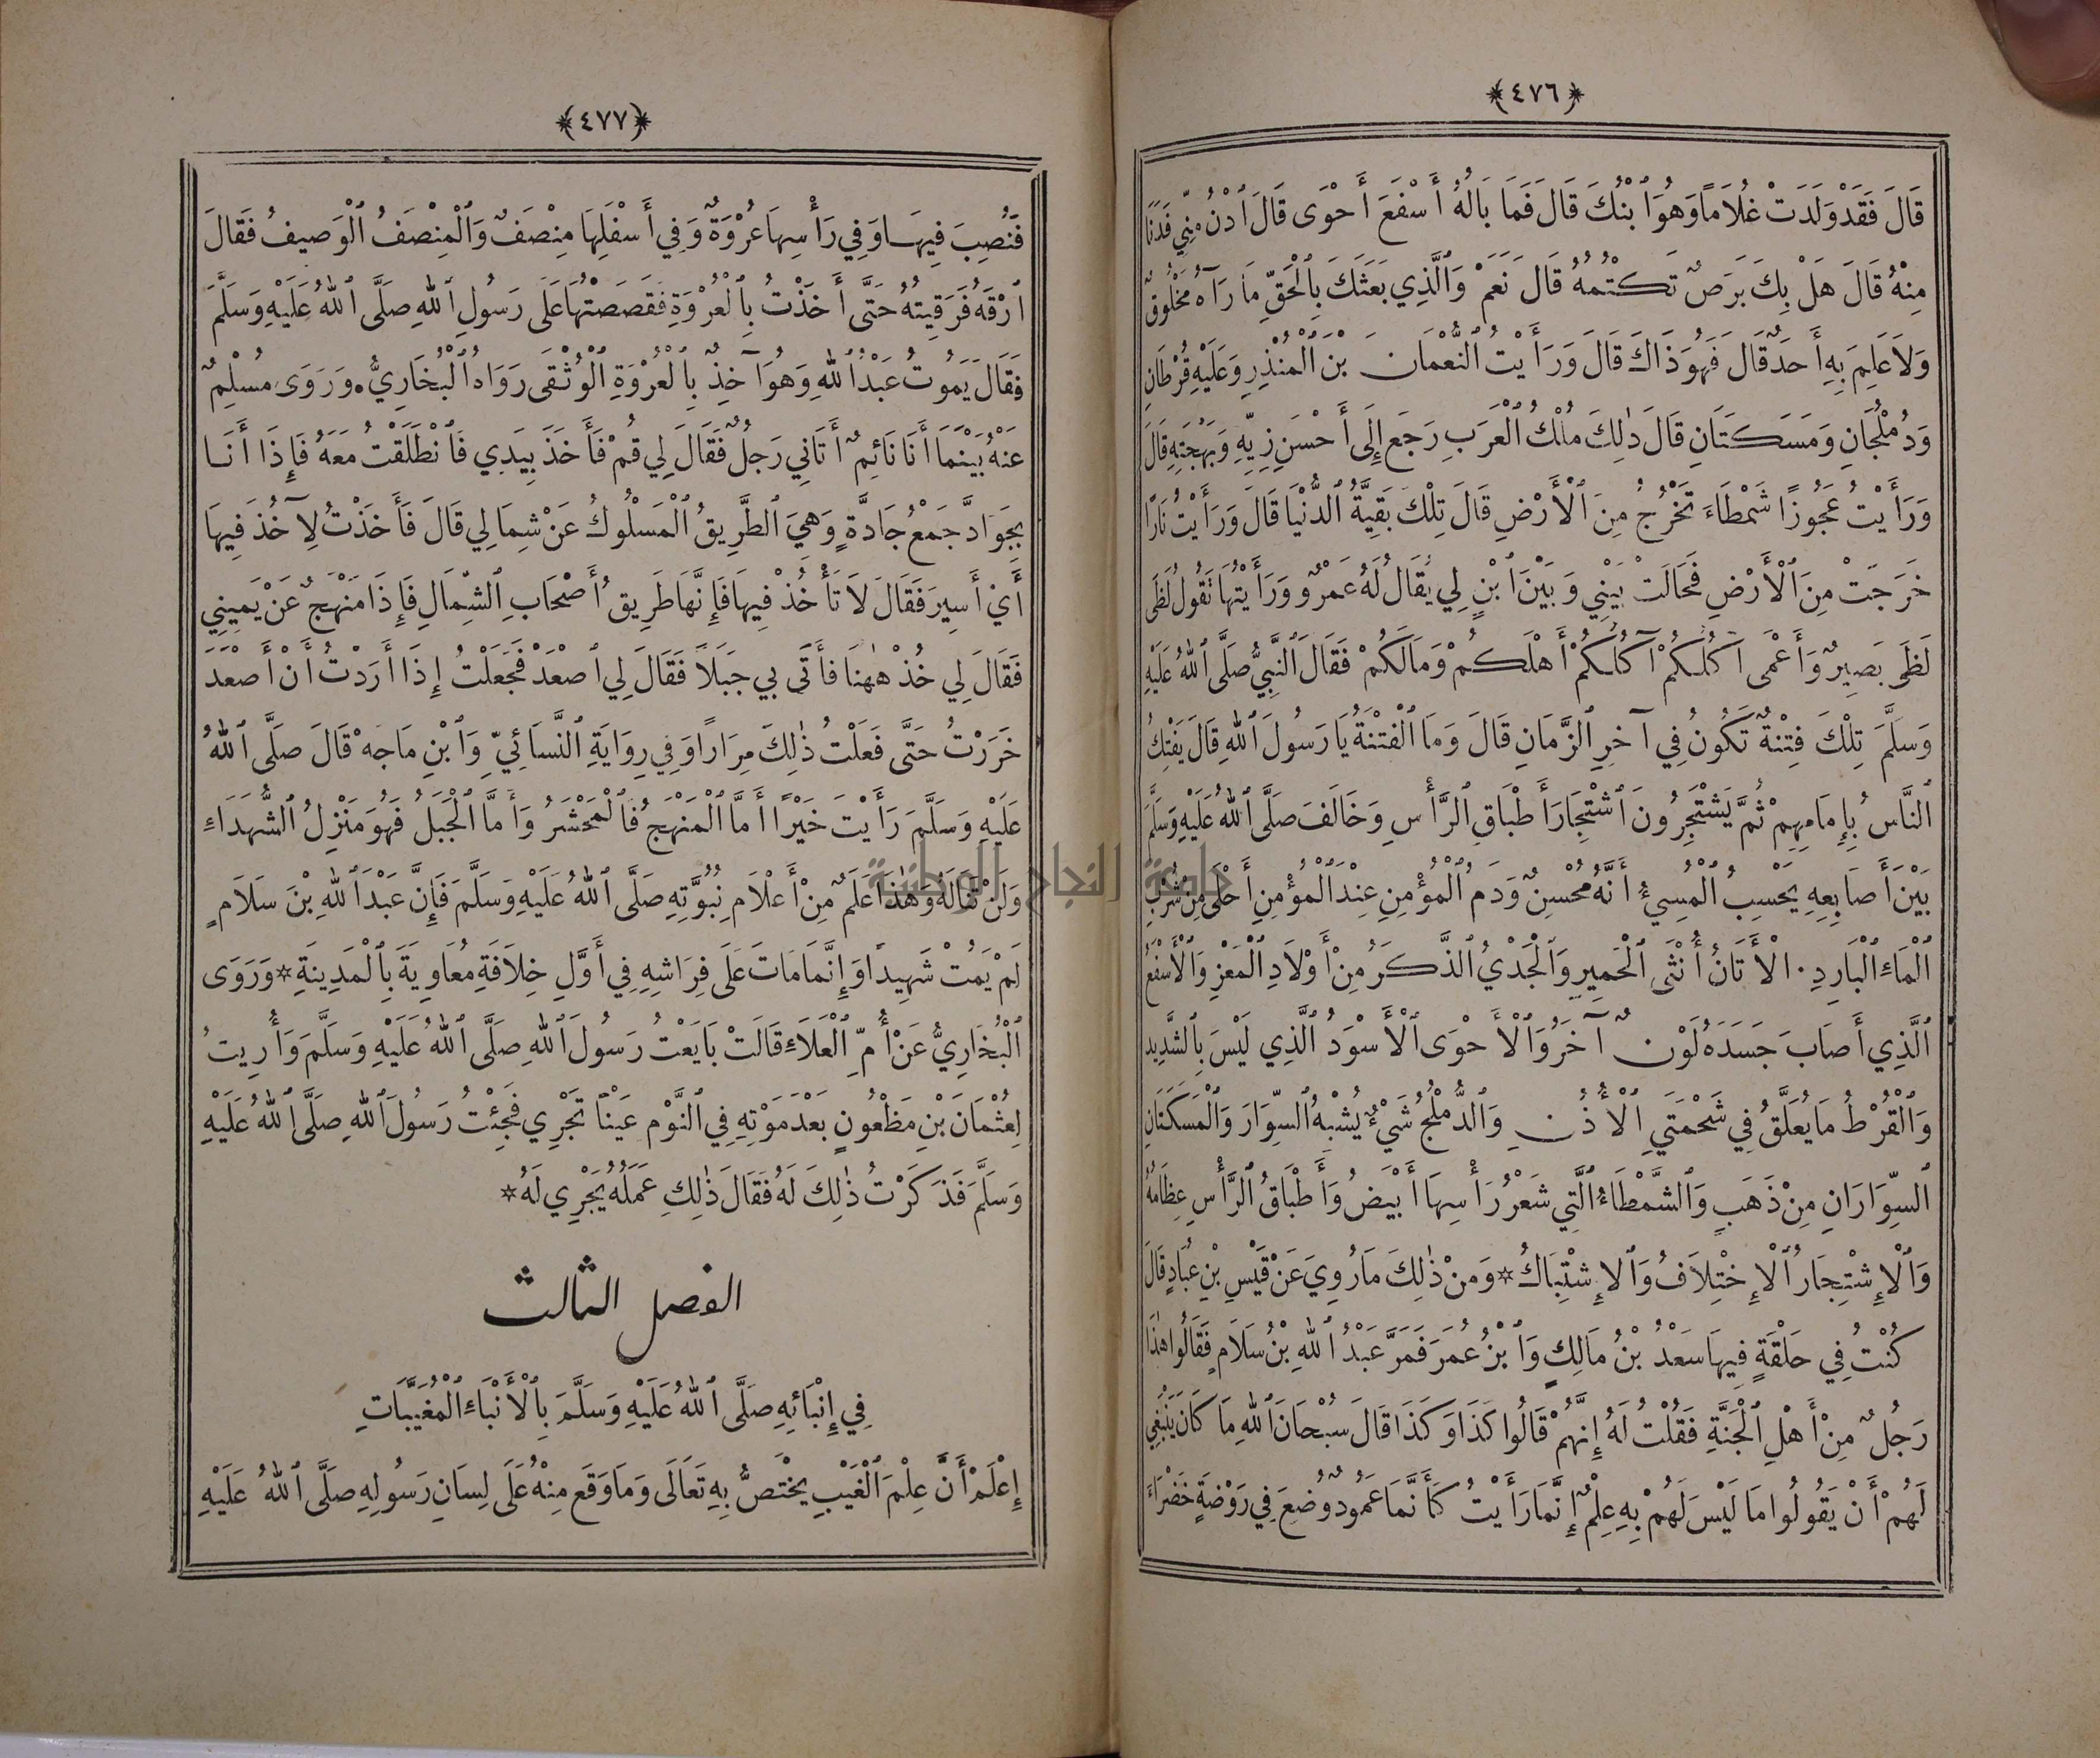 ﴿٤٧٦﴾
قَالَ فَقَدْ وَلَدَتْ غُلَامًا وَهُوَ ٱبْنُكَ قَالَ فَمَا بَالُهُ أَسْفَعَ أَحْوَى قَالَ ٱدْنُ مِنِّي فَدَنَا
مِنْهُ قَالَ هَلْ بِكَ بَرَصٌ تَكْتُمُهُ قَالَ نَعَمْ وَٱلَّذِي بَعَثَكَ بِٱلْحَقِّ مَا رَآهُ مَخْلُوقٌ
وَلَا عَلِمَ بِهِ أَحَدٌ قَالَ فَهُوَ ذَاكَ قَالَ وَرَأَيْتُ ٱلنُّعْمَانَ بْنَ ٱلْمُنْذِرِ وَعَلَيْهِ قُرْطَانِ
وَدُمْلُجَانِ وَمَسَكَتَانِ قَالَ ذٰلِكَ مُلْكُ ٱلْعَرَبِ رَجَعَ إِلَى أَحْسَنِ زِيِّهِ وَبَهْجَتِهِ قَالَ
وَرَأَيْتُ عَجُوزًا شَمْطَاءَ تَخْرُجُ مِنَ ٱلْأَرْضِ قَالَ تِلْكَ بَقِيَّةُ ٱلدُّنْيَا قَالَ وَرَأَيْتُ نَارًا
خَرَجَتْ مِنَ ٱلْأَرْضِ فَحَالَتْ بَيْنِي وَبَيْنَ ٱبْنٍ لِي يُقَالُ لَهُ عَمْرٌو وَرَأَيْتُهَا تَقُولُ لَظَى
لَظَى بَصِيرٌ وَأَعْمَى آكُلُكُمْ آكُلُكُمْ أَهْلَكُمْ وَمَالَكُمْ فَقَالَ ٱلنَّبِيُّ صَلَّى ٱللهُ عَلَيْهِ
وَسَلَّمَ تِلْكَ فِتْنَةٌ تَكُونُ فِي آخِرِ ٱلزَّمَانِ قَالَ وَمَا ٱلْفِتْنَةُ يَا رَسُولَ ٱللهِ قَالَ يَفْتِكُ
ٱلنَّاسُ بِإِمَامِهِمْ ثُمَّ يَشْتَجِرُونَ ٱشْتِجَارَ أَطْبَاقِ ٱلرَّأْسِ وَخَالَفَ صَلَّى ٱللهُ عَلَيْهِ وَسَلَّمَ
بَيْنَ أَصَابِعِهِ يَحْسِبُ ٱلْمُسِيءُ أَنَّهُ مُحْسِنٌ وَدَمُ ٱلْمُؤْمِنِ عِنْدَ ٱلْمُؤْمِنِ أَحْلَى مِنْ شُرْبِ
ٱلْمَاءِ ٱلْبَارِدِ . ٱلْأَتَانُ أُنْثَى ٱلْحَمِيرِ وَٱلْجَدْيُ ٱلذَّكَرُ مِنْ أَوْلَادِ ٱلْمَعْزِ وَٱلْأَسْفَعُ
ٱلَّذِي أَصَابَ جَسَدَهُ لَوْنٌ آخَرُ وَٱلْأَحْوَى ٱلْأَسْوَدُ ٱلَّذِي لَيْسَ بِٱلشَّدِيدِ
وَٱلْقُرْطُ مَا يُعَلَّقُ فِي شَحْمَتَيِ ٱلْأُذُنِ وَٱلدُّمْلُجُ شَيْءٌ يُشْبِهُ ٱلسِّوَارَ وَٱلْمَسَكَتَانِ
ٱلسِّوَارَانِ مِنْ ذَهَبٍ وَٱلشَّمْطَاءُ ٱلَّتِي شَعْرُ رَأْسِهَا أَبْيَضُ وَأَطْبَاقُ ٱلرَّأْسِ عِظَامُهُ
وَٱلْإِشْتِجَارُ ٱلْإِخْتِلَافُ وَٱلْإِشْتِبَاكُ * وَمِنْ ذٰلِكَ مَا رُوِيَ عَنْ قَيْسِ بْنِ عُبَادٍ قَالَ
كُنْتُ فِي حَلْقَةٍ فِيهَا سَعْدُ بْنُ مَالِكٍ وَٱبْنُ عُمَرَ فَمَرَّ عَبْدُ ٱللهِ بْنُ سَلَامٍ فَقَالُوا هٰذَا
رَجُلٌ مِنْ أَهْلِ ٱلْجَنَّةِ فَقُلْتُ لَهُ إِنَّهُمْ قَالُوا كَذَا وَكَذَا قَالَ سُبْحَانَ ٱللهِ مَا كَانَ يَنْبَغِي
لَهُمْ أَنْ يَقُولُوا مَا لَيْسَ لَهُمْ بِهِ عِلْمٌ إِنَّمَا رَأَيْتُ كَأَنَّمَا عَمُودٌ وُضِعَ فِي رَوْضَةٍ خَضْرَاءَ
﴿٤٧٧﴾
فَنُصِبَ فِيهَا وَفِي رَأْسِهَا عُرْوَةٌ وَفِي أَسْفَلِهَا مِنْصَفٌ وَٱلْمِنْصَفُ ٱلْوَصِيفُ فَقَالَ
ٱرْقَهْ فَرَقِيتُهُ حَتَّى أَخَذْتُ بِٱلْعُرْوَةِ فَقَصَصْتُهَا عَلَى رَسُولِ ٱللهِ صَلَّى ٱللهُ عَلَيْهِ وَسَلَّمَ
فَقَالَ يَمُوتُ عَبْدُ ٱللهِ وَهُوَ آخِذٌ بِٱلْعُرْوَةِ ٱلْوُثْقَى رَوَاهُ ٱلْبُخَارِيُّ . وَرَوَى مُسْلِمٌ
عَنْهُ بَيْنَمَا أَنَا نَائِمٌ أَتَانِي رَجُلٌ فَقَالَ لِي قُمْ فَأَخَذَ بِيَدِي فَٱنْطَلَقْتُ مَعَهُ فَإِذَا أَنَا
بِجَوَادَّ جَمْعُ جَادَّةٍ وَهِيَ ٱلطَّرِيقُ ٱلْمَسْلُوكُ عَنْ شِمَالِي قَالَ فَأَخَذْتُ لِآخُذَ فِيهَا
أَيْ أَسِيرَ فَقَالَ لَا تَأْخُذْ فِيهَا فَإِنَّهَا طَرِيقُ أَصْحَابِ ٱلشِّمَالِ فَإِذَا مَنْهَجٌ عَنْ يَمِينِي
فَقَالَ لِي خُذْ هٰهُنَا فَأَتَى بِي جَبَلًا فَقَالَ لِي ٱصْعَدْ فَجَعَلْتُ إِذَا أَرَدْتُ أَنْ أَصْعَدَ
خَرَرْتُ حَتَّى فَعَلْتُ ذٰلِكَ مِرَارًا وَفِي رِوَايَةِ ٱلنَّسَائِيِّ وَٱبْنِ مَاجَهْ قَالَ صَلَّى ٱللهُ
عَلَيْهِ وَسَلَّمَ رَأَيْتَ خَيْرًا أَمَّا ٱلْمَنْهَجُ فَٱلْمَحْشَرُ وَأَمَّا ٱلْجَبَلُ فَهُوَ مَنْزِلُ ٱلشُّهَدَاءِ
وَلَنْ تَنَالَهُ وَهٰذَا عَلَمٌ مِنْ أَعْلَامِ نُبُوَّتِهِ صَلَّى ٱللهُ عَلَيْهِ وَسَلَّمَ فَإِنَّ عَبْدَ ٱللهِ بْنَ سَلَامٍ
لَمْ يَمُتْ شَهِيدًا وَإِنَّمَا مَاتَ عَلَى فِرَاشِهِ فِي أَوَّلِ خِلَافَةِ مُعَاوِيَةَ بِٱلْمَدِينَةِ * وَرَوَى
ٱلْبُخَارِيُّ عَنْ أُمِّ ٱلْعَلَاءِ قَالَتْ بَايَعْتُ رَسُولَ ٱللهِ صَلَّى ٱللهُ عَلَيْهِ وَسَلَّمَ وَأُرِيتُ
لِعُثْمَانَ بْنِ مَظْعُونٍ بَعْدَ مَوْتِهِ فِي ٱلنَّوْمِ عَيْنًا تَجْرِي فَجِئْتُ رَسُولَ ٱللهِ صَلَّى ٱللهُ عَلَيْهِ
وَسَلَّمَ فَذَكَرْتُ ذٰلِكَ لَهُ فَقَالَ ذٰلِكِ عَمَلُهُ يَجْرِي لَهُ *
الفصل الثالث
فِي إِنْبَائِهِ صَلَّى ٱللهُ عَلَيْهِ وَسَلَّمَ بِٱلْأَنْبَاءِ ٱلْمُغَيَّبَاتِ
إِعْلَمْ أَنَّ عِلْمَ ٱلْغَيْبِ يَخْتَصُّ بِهِ تَعَالَى وَمَا وَقَعَ مِنْهُ عَلَى لِسَانِ رَسُولِهِ صَلَّى ٱللهُ عَلَيْهِ
جامعة النجاح الوطنية